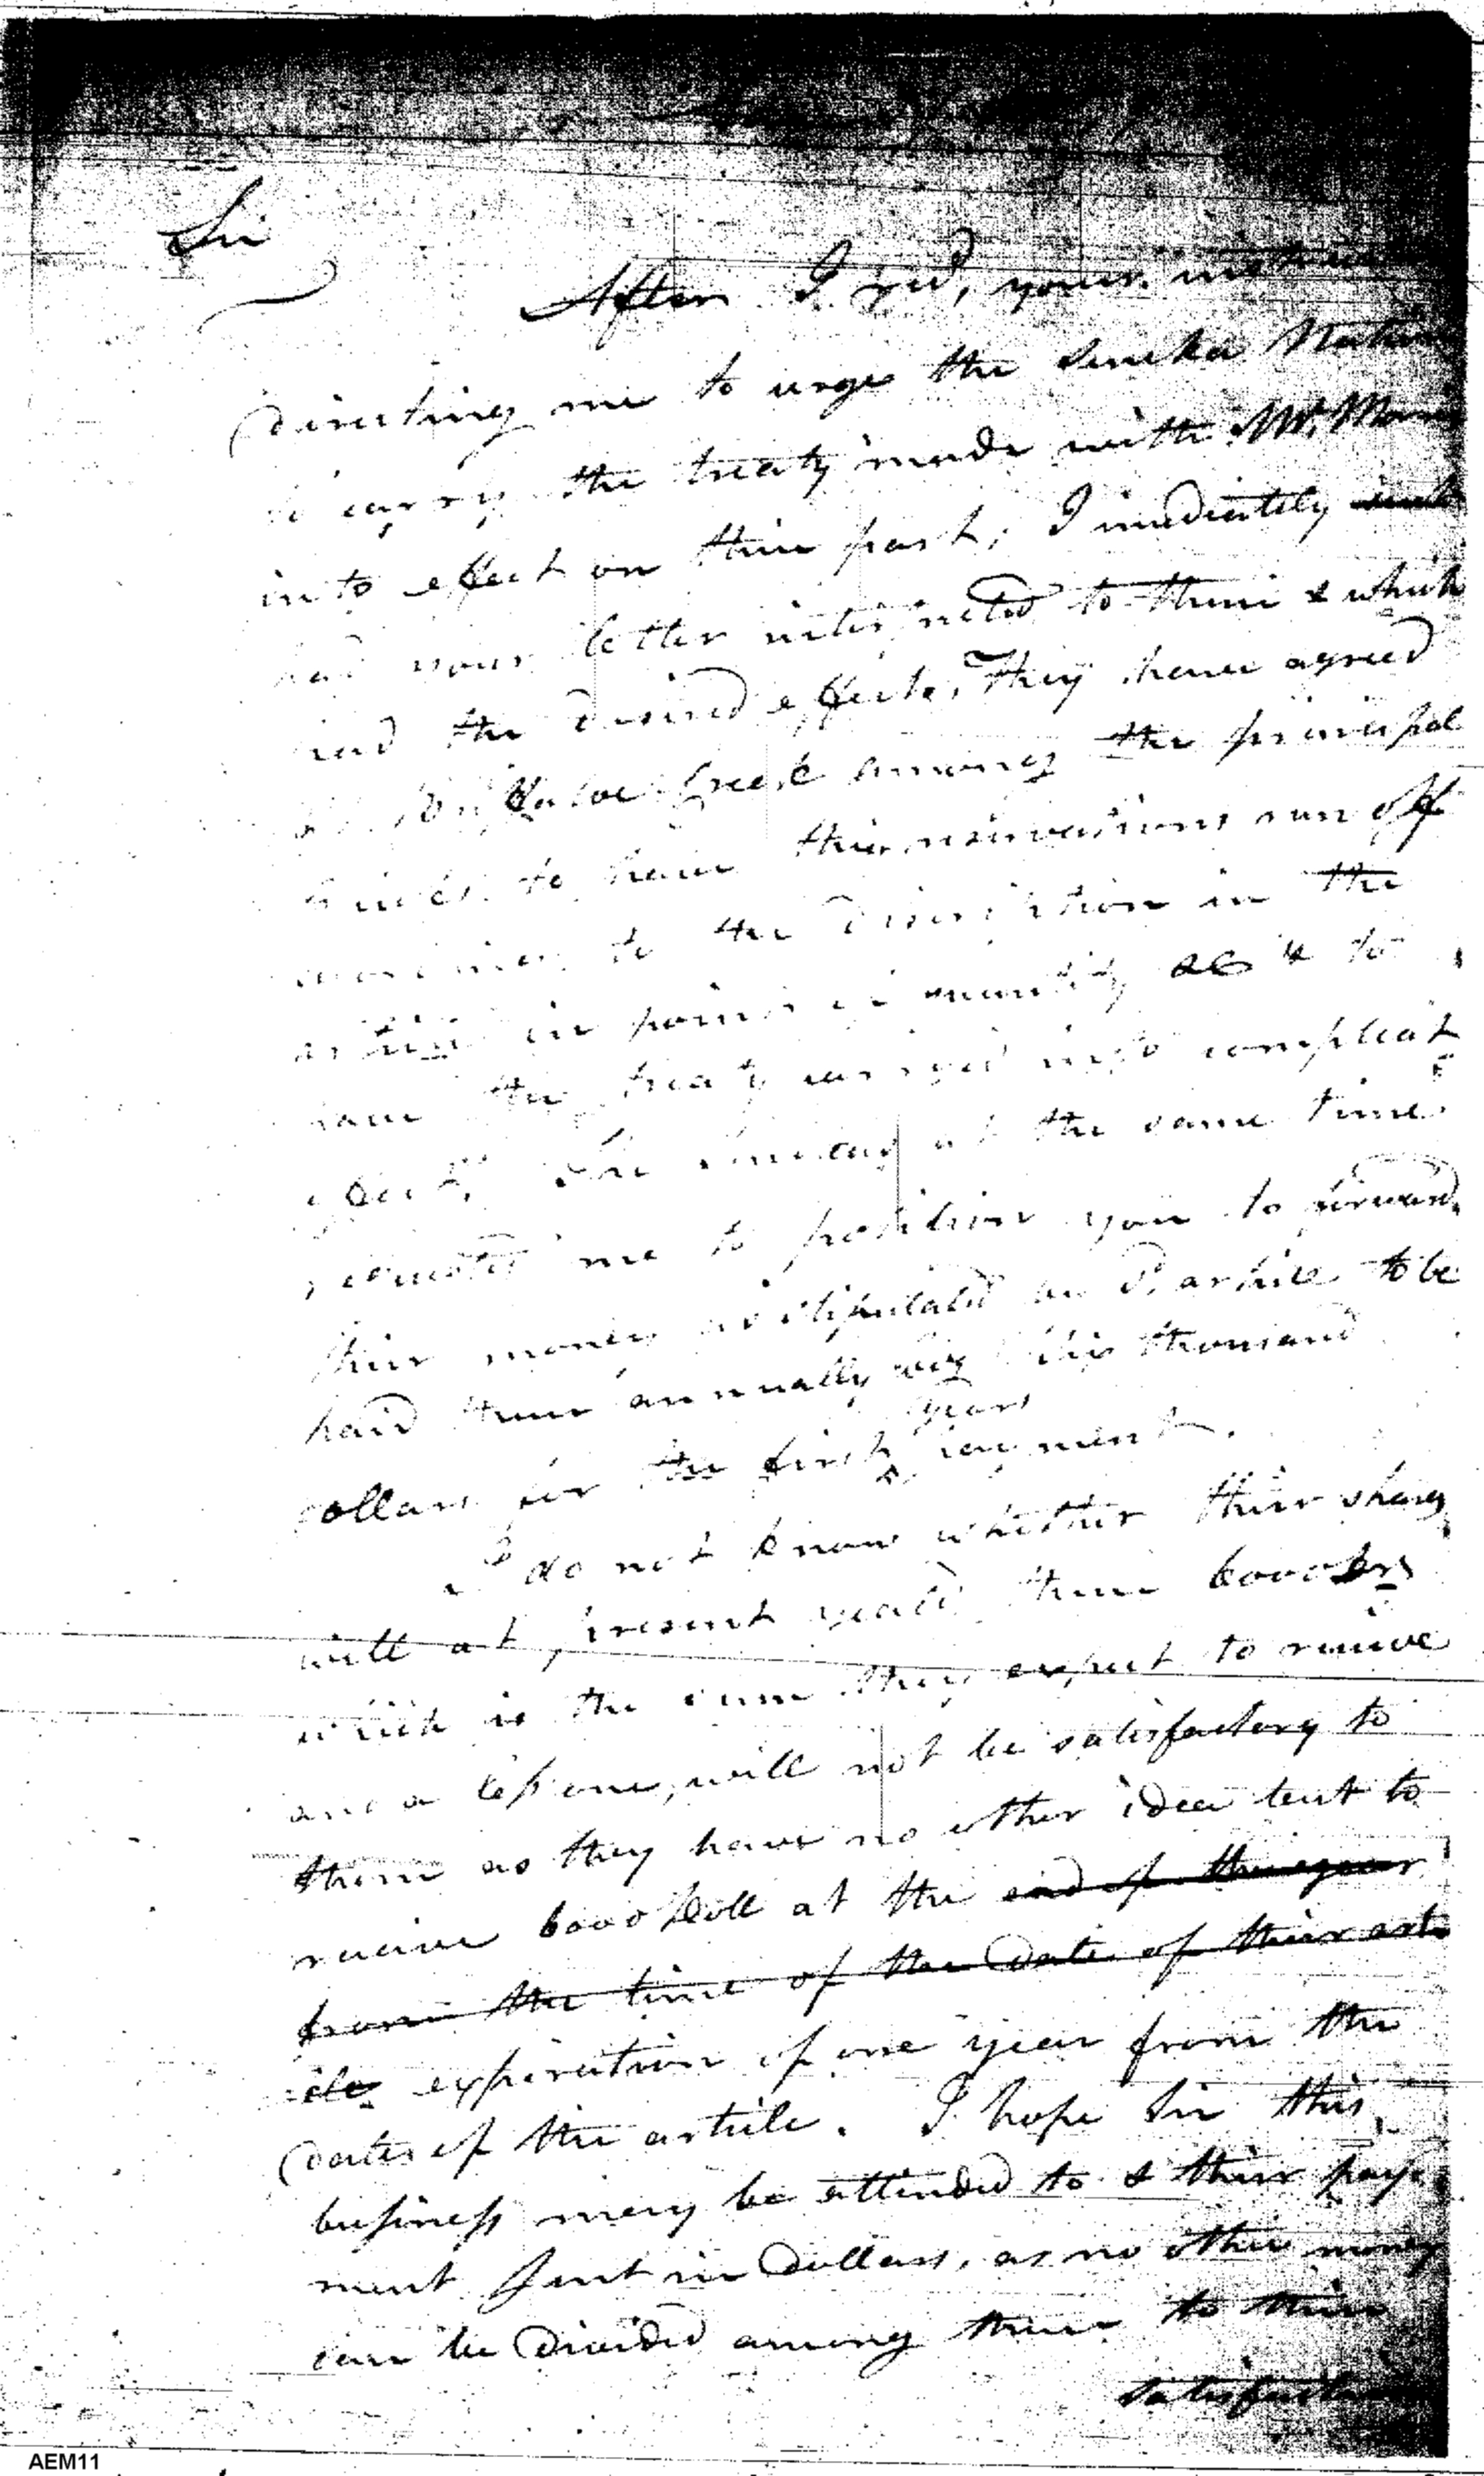 Sir
After I recd, your instruc
directing me to urge the Seneka Nation
to carry the treaty made with Mr. Morris
into effect on their part, I imediately
had your letter interpreted to them & which
had the desired effects, They have agreed
at Buffaloe Creek among the principal
to have their reservations run off
according to the discription in the
article in point of quantity & to
have the treaty carryed into compleat
effect. The at the same time
requested me to petition you to forward
their money as stipulated in article to be
paid them annually viz thousand
years
dollars for the first payment.
I do not know whether their shares
will at present yeald them 6000 Drs
which is the sum they expect to receive
and a less one, will not be satisfactory to
them as they have no other idea but to
receive 6000 Doll at the end of the year
from the time of the date of their arti
cle expiration of one year from the
date of the article. I hope Sir this
business may be attended to & their pay
ment sent in Dollars, as no other money
can be divided among them to their
satisfaction
AEM11